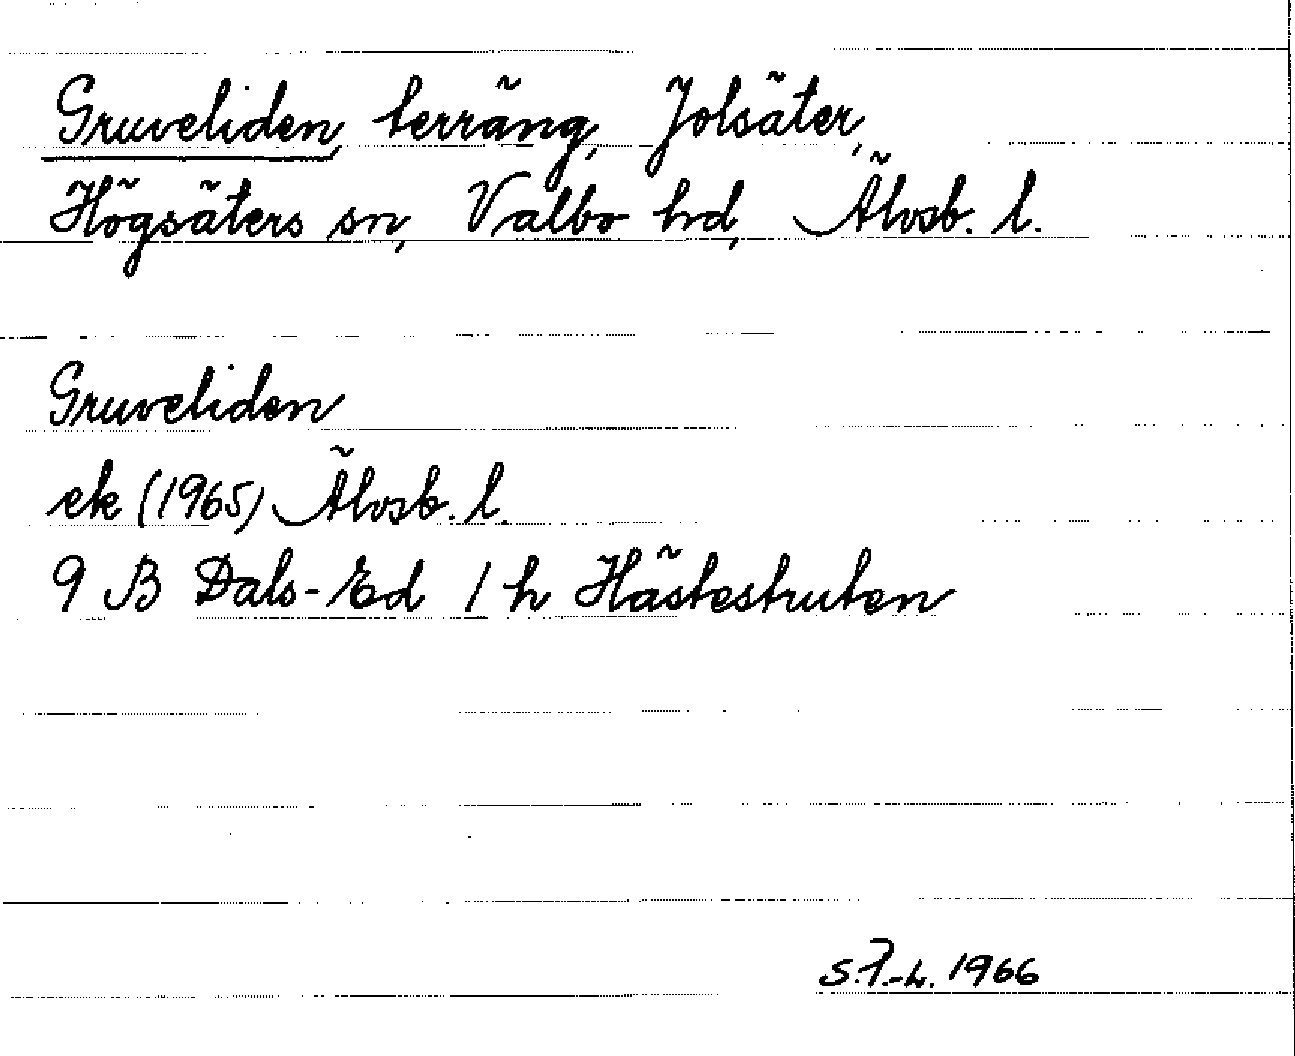 Gruveliden, terräng, Jolsäter,
Högsäters sn, Valbo hd, Älvsb. l.
Gruveliden
ek (1965) Älvsb. l.
9 B Dals-Ed 1 h Hästestruten
S.F.-L. 1966